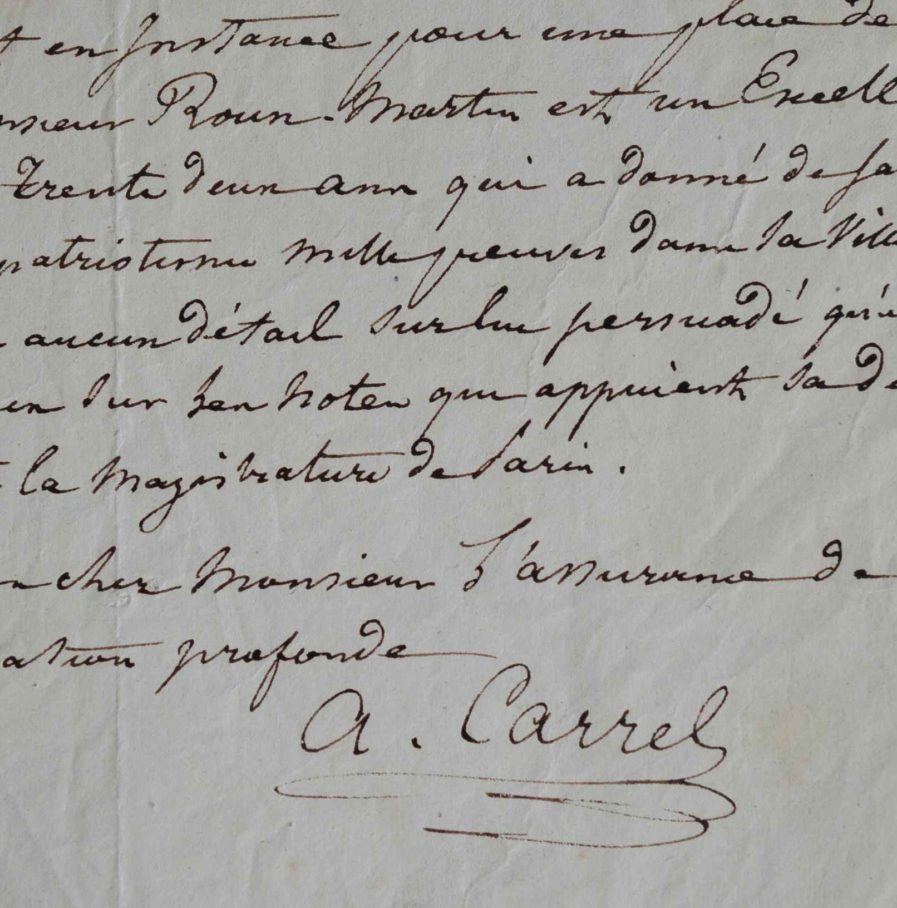 t en instance pour une place de
nsieur Roux-Martin est un Excell
trente deux ans qui a donné de sa
patriotisme mille preuves dans la Vill
aucun détail sur lui persuadé qu'u
en sur les notes qui appuient sa de
t la Magistrature de Paris.
n cher Monsieur l'assurance de
ation profonde
A. Carrel